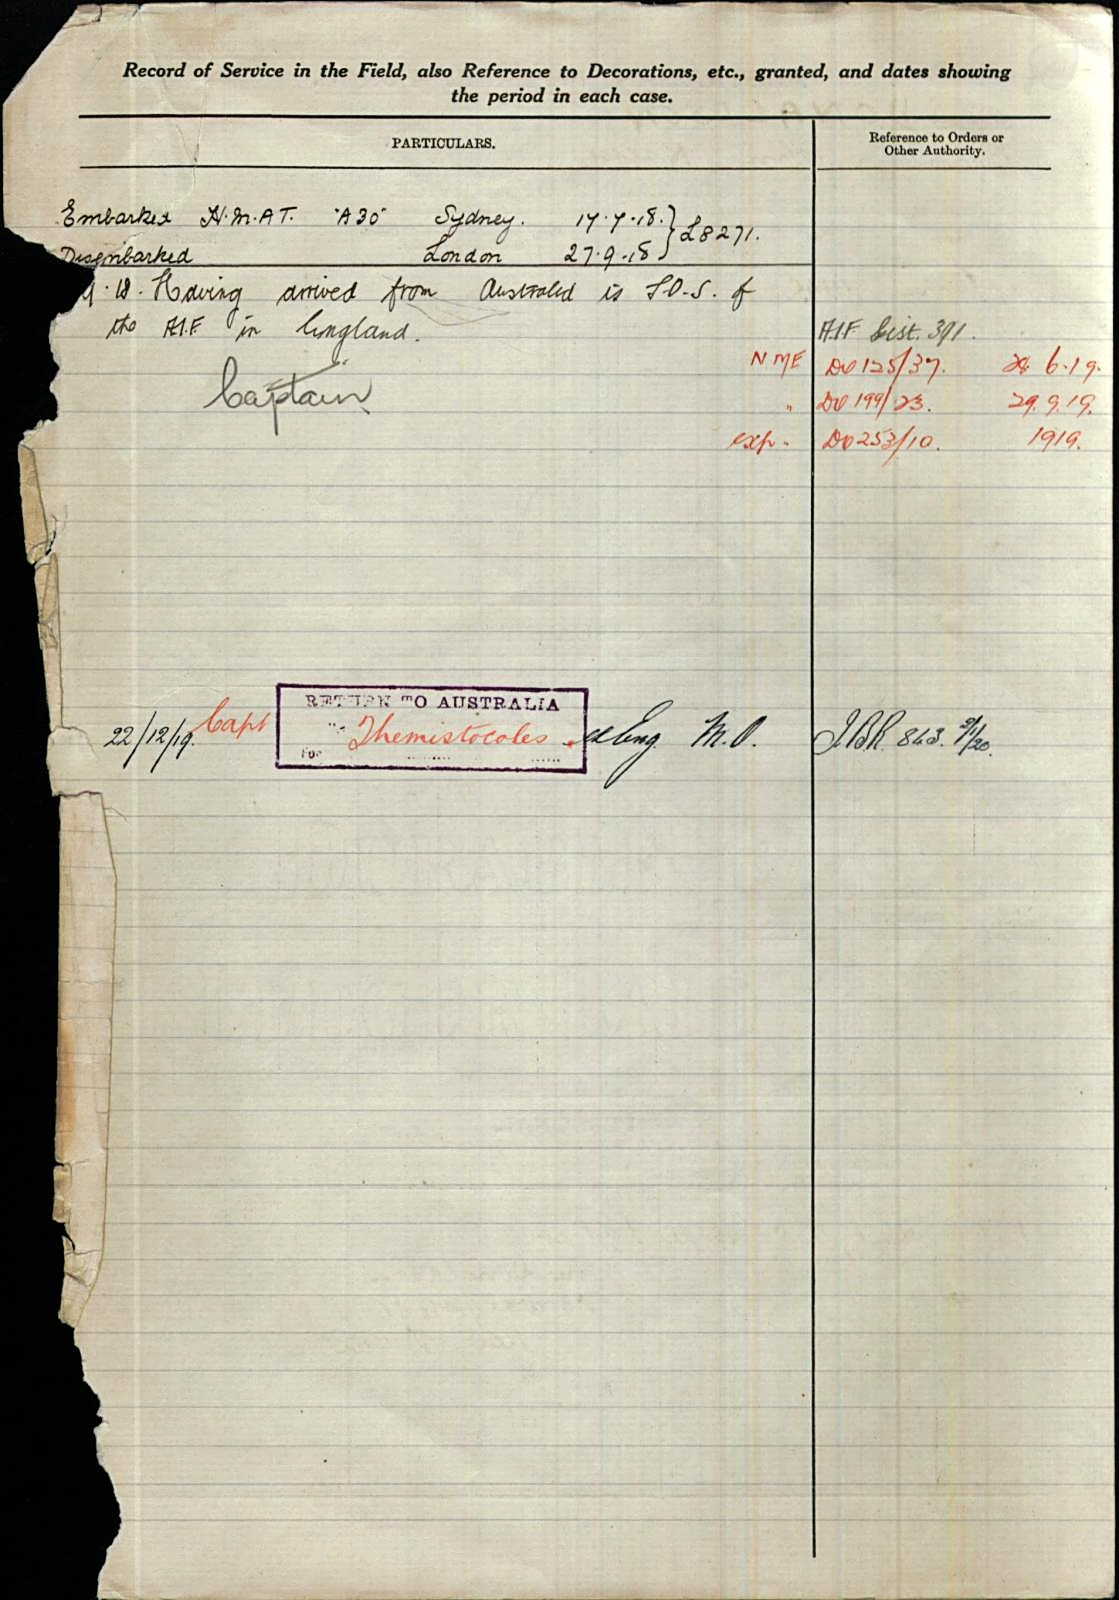 Record of Service in the Field, also Reference to Decorations, etc., granted, and dates showing
the period in each case.
PARTICULARS.
Reference to Orders or
Other Authority.
Embarked H.M.A.T. "A30" Sydney. 17.7.18. } L8271.
Disembarked London 27.9.18
9.18. Having arrived from Australia is T.O.S. of
the A.I.F. in England.
A.I.F. List. 391.
NME DO 125/37. 24.6.19.
Captain
" DO 199/23. 29.9.19.
exp. DO 253/10. 1919.
RETURN TO AUSTRALIA
22/12/19. Capt Themistocles ex Eng. M.O. 843. 9/1/20.
For